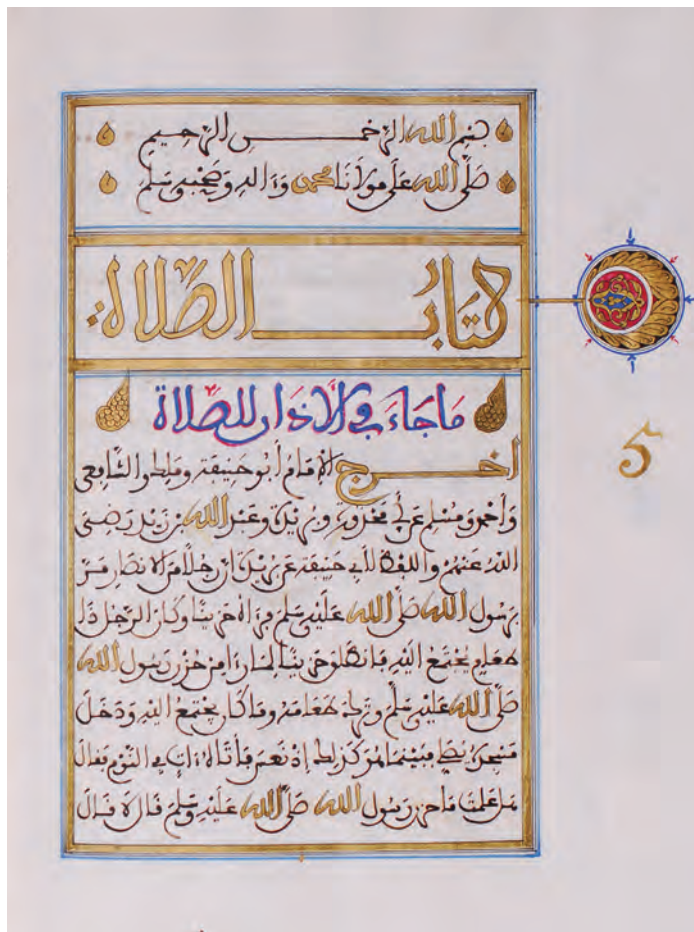 بسم الله الرحمن الرحيم
صلى الله على مولانا محمد وءاله وصحبه وسلم
كتاب الصلاة
ما جاء في الأذان للصلاة
أخرج الإمام أبو حنيفة وملك والشافعي
وأحمد ومسلم عن أبي محذورة وبريدة وعبد الله بن زيد رضي
الله عنهم واللفظ لأبي حنيفة عن بريدة أن رجلا من الأنصار مر
برسول الله صلى الله عليه وسلم فرءاه حزينا وكان الرجل ذا
طعام يجتمع إليه فانطلق حزينا لما رءا من حزن رسول الله
صلى الله عليه وسلم وترك طعامه وما كان يجتمع إليه ودخل
مسجده يصلي فبينما هو كذلك إذ نعس فأتاه ءات في النوم فقال
ما علمت ما حزن رسول الله صلى الله عليه وسلم قال لا قال